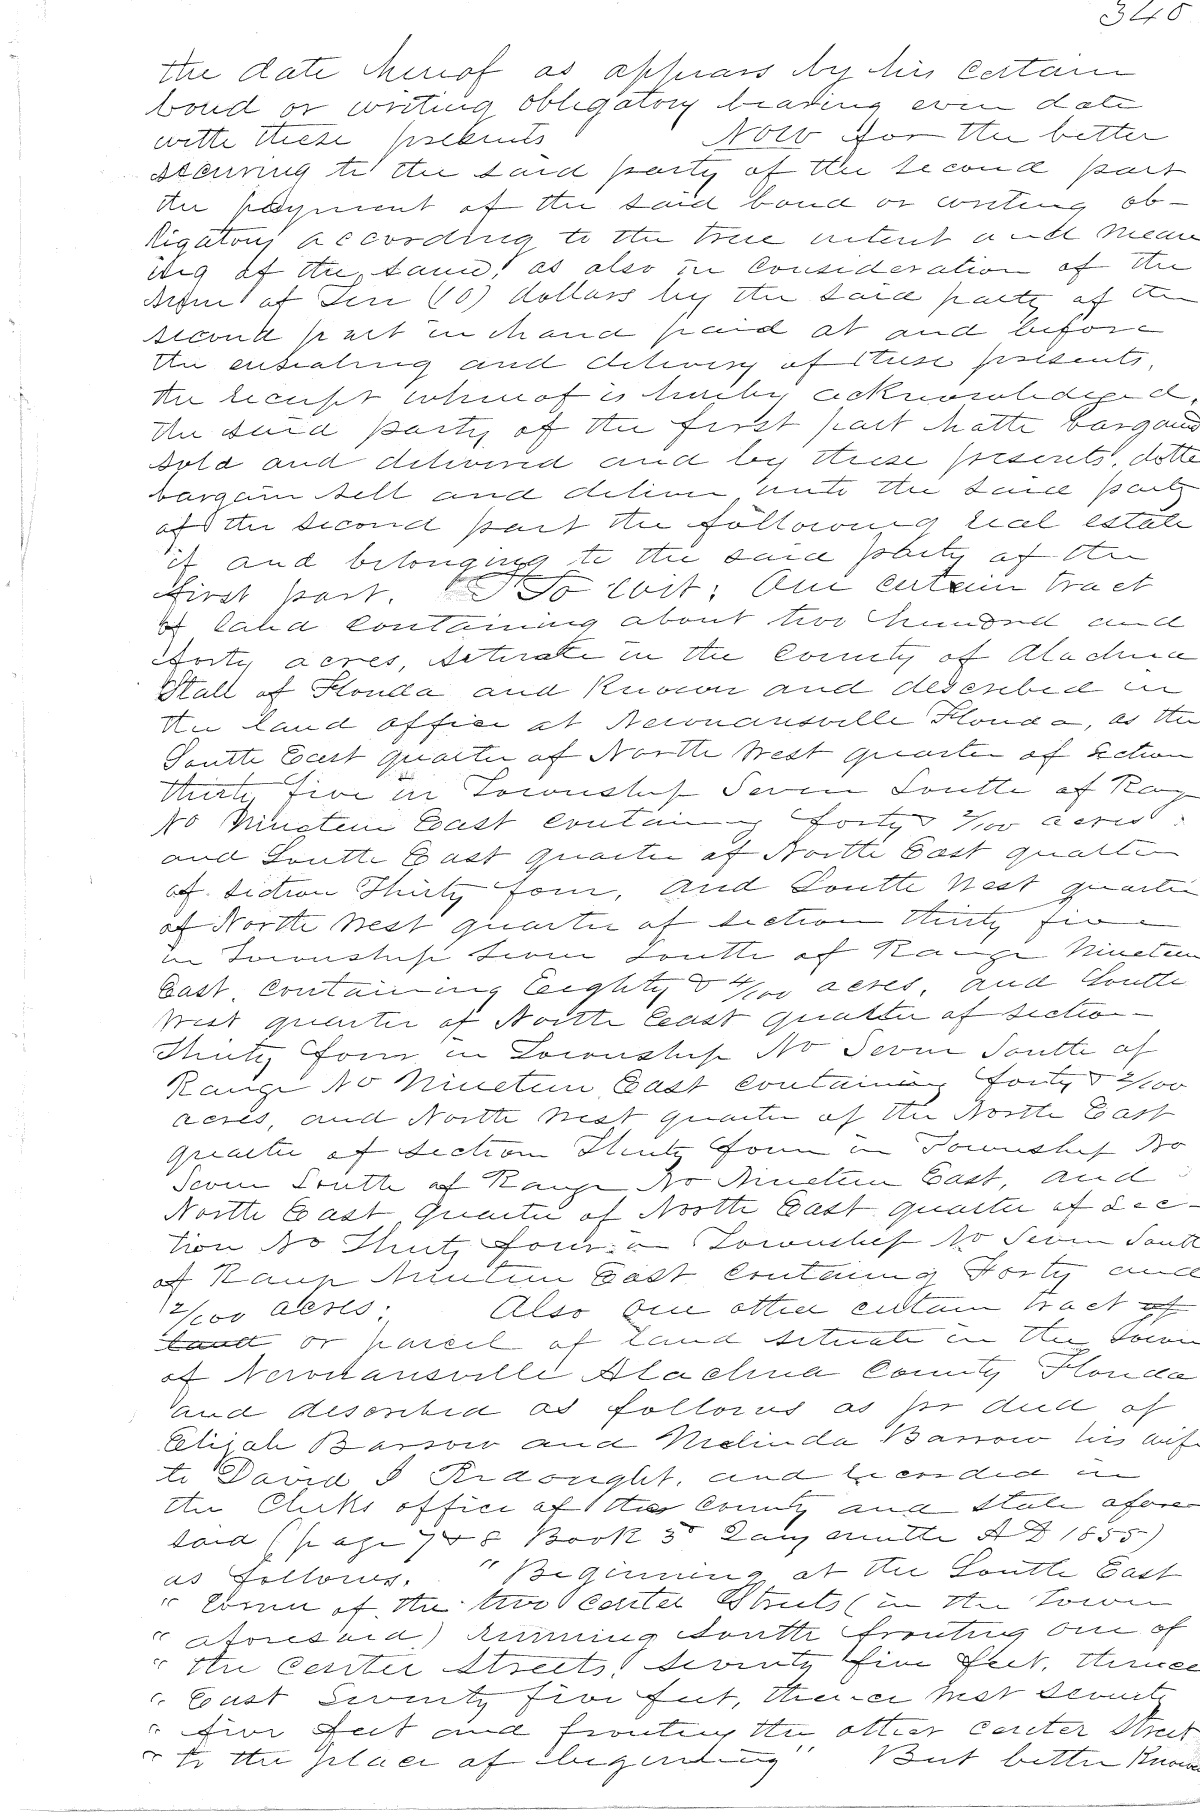 345
the date hereof as appears by his certain
bond or writing obligatory bearing even date
with these presents Now for the better
securing to the said party of the second part
the payment of the said bond or writing ob-
ligatory according to the true intent and mean
ing of the same, as also in consideration of the
sum of Ten (10) dollars by the said party of the
second part in hand paid at and before
the ensealing and delivery of these presents,
the receipt whereof is hereby acknowledged,
the said party of the first part hath bargained
sold and delivered and by these presents, doth
bargain sell and deliver unto the said party
of the second part the following real estate
of and belonging to the said party of the
first part. To wit; One certain tract
of land containing about two hundred and
forty acres, situate in the County of Alachua
State of Florida and known and described in
the land office at Newnansville Florida, as the
South East quarter of North West quarter of section
thirty five in Township Seven South of Range
No Nineteen East containing forty & 2/100 acres;
and South East quarter of North East quarter
of section Thirty four, and South West quarter
of North West quarter of section thirty five
in Township Seven South of Range Nineteen
East containing Eeighty & 4/100 acres, and South
West quarter of North East quarter of section
Thirty four in Township No Seven South of
Range No Nineteen East containing forty & 2/100
acres, and North West quarter of the North East
quarter of section Thirty four in Township No
Seven South of Range No Nineteen East, and
North East quarter of North East quarter of Sec-
tion No Thirty four in Township No Seven South
of Range Nineteen East containing Forty and
2/100 acres; Also one other certain tract of
land or parcel of land situate in the Town
of Newnansville Alachua County Florida
and described as follows as pr deed of
Elijah Barrow and Melinda Barrow his wife
to David I and recorded in
the Clerks office of the County and State afore
said (page 7 & 8 Book 5 Jany A D 1855)
as follows. "Beginning at the South East
" corner of the two center Streets (in the Town
" aforesaid) running South fronting one of
" the center Streets, seventy five feet, thence
" East Seventy five feet, thence West seventy
" five feet and fronting the other center Street
" to the place of beginning" But better known